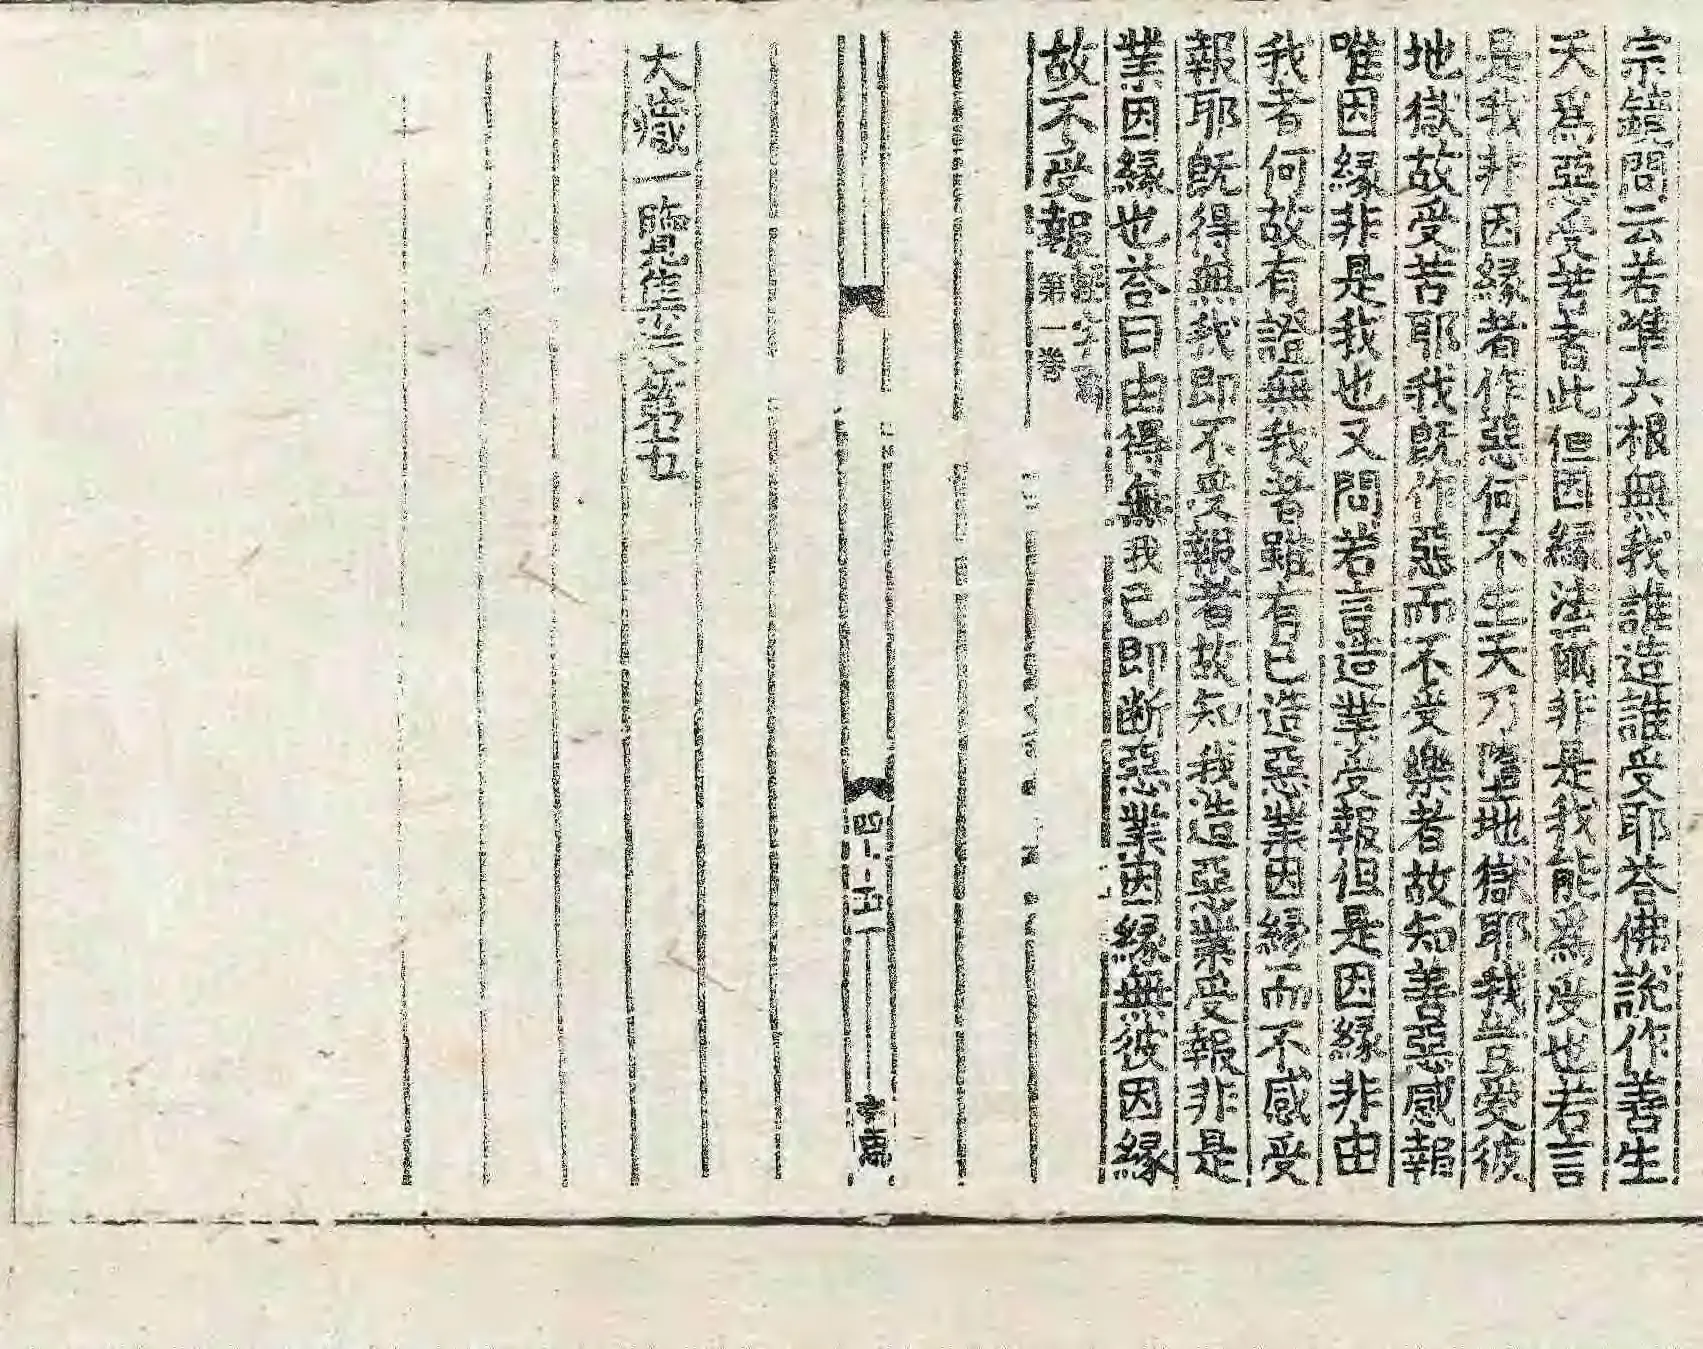 宗鏡問云若準六根無我誰造誰受耶荅佛說作善生
天爲惡受苦者此但因緣法爾非是我能爲受也若言
是我非因緣者作惡何不生天乃墮地獄耶我豈愛彼
地獄故受苦耶我旣作惡而不受樂者故知善惡感報
唯因緣非是我也又問若言造業受報但是因緣非由
我者何故有證無我者雖有已造惡業因緣而不感受
報耶旣得無我即不受報者故知我造惡業受報非是
業因緣也荅曰由得無我已即斷惡業因緣無彼因緣
故不受報
第一卷
四
五
大藏一覽集卷第五